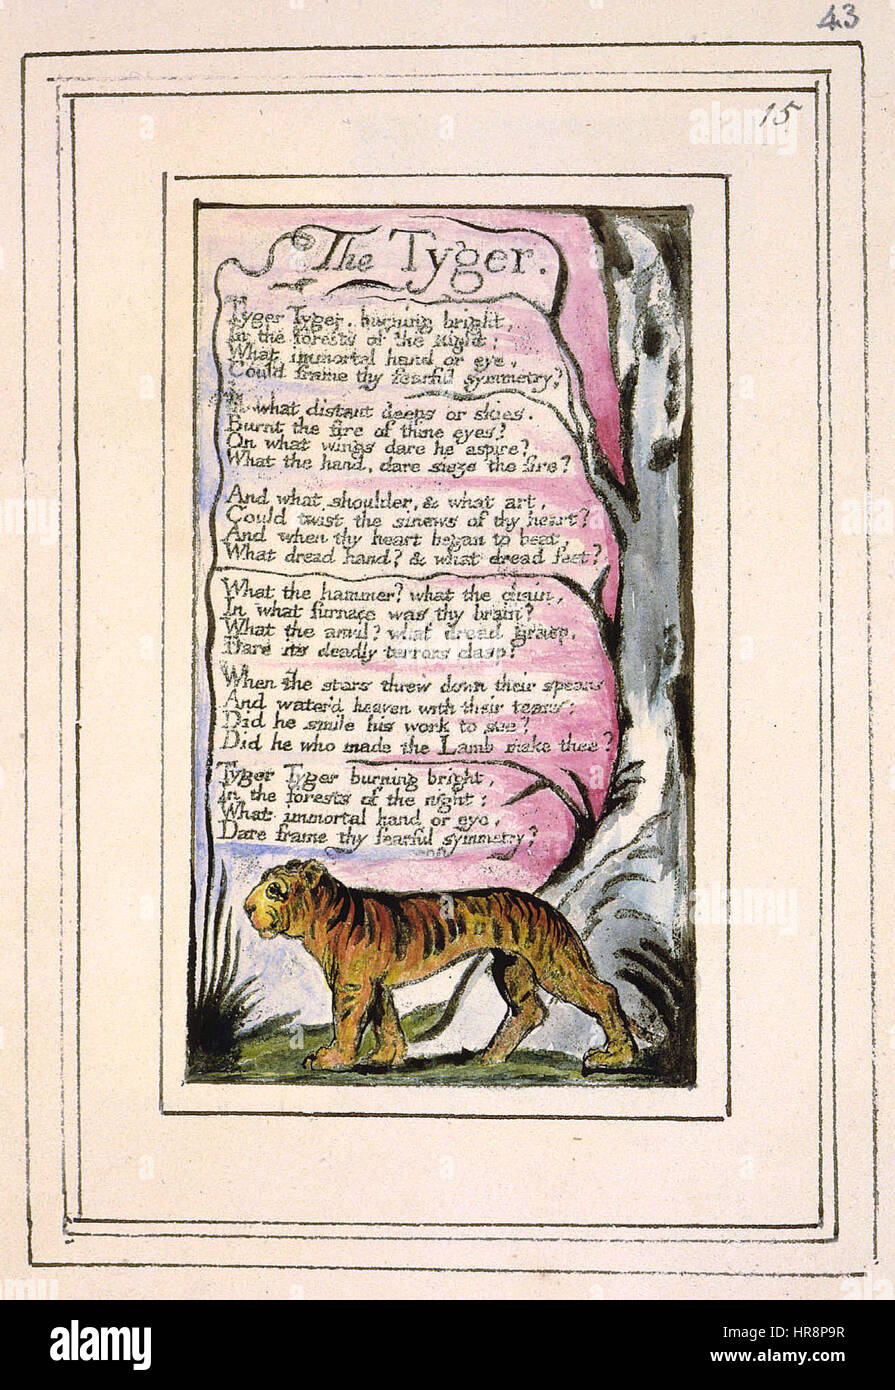 43
15
The Tyger.
Tyger Tyger. burning bright,
In the forests of the night:
What immortal hand or eye,
Could frame thy fearful symmetry?
In what distant deeps or skies.
Burnt the fire of thine eyes?
On what wings dare he aspire?
What the hand, dare sieze the fire?
And what shoulder, & what art,
Could twist the sinews of thy heart?
And when thy heart began to beat,
What dread hand? & what dread feet?
What the hammer? what the chain,
In what furnace was thy brain?
What the anvil? what dread grasp,
Dare its deadly terrors clasp?
When the stars threw down their spears
And water'd heaven with their tears:
Did he smile his work to see?
Did he who made the Lamb make thee?
Tyger Tyger burning bright,
In the forests of the night:
What immortal hand or eye,
Dare frame thy fearful symmetry?
alamy
Image ID: HR8P9R
www.alamy.com